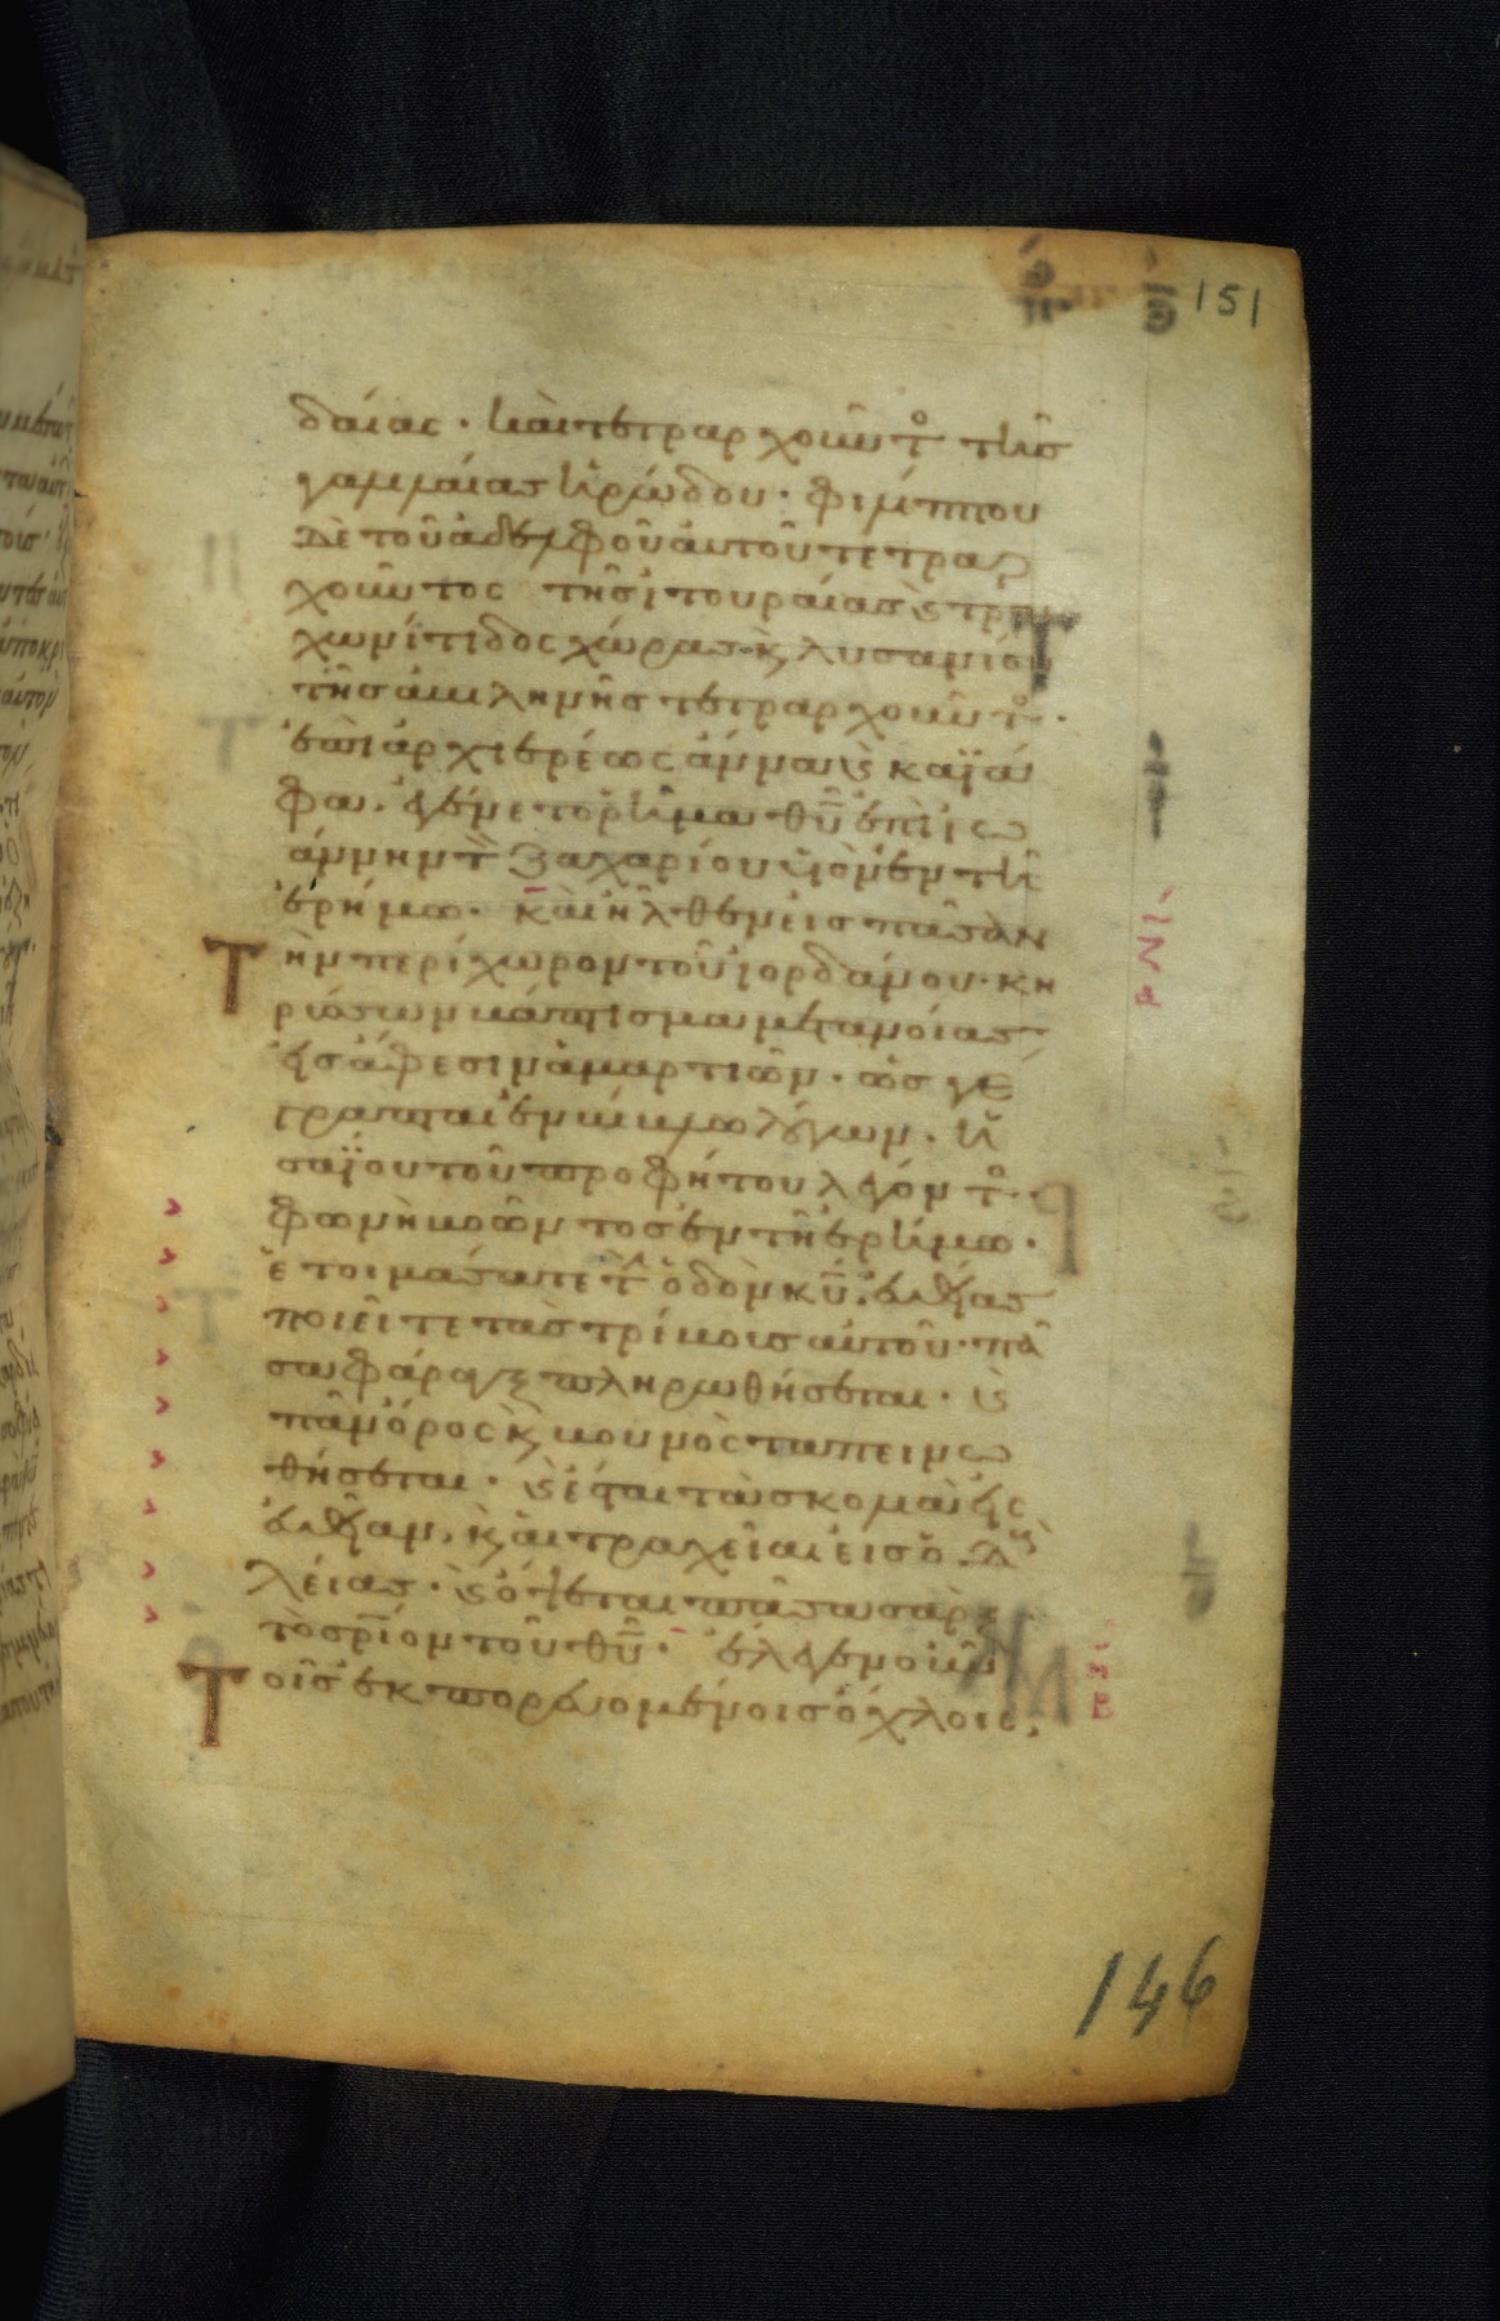 151
δαίας · καὶ τετραρχοῦντο τῆς
γαλιλαίας ἡρώδου · φιλίππου
δὲ τοῦ ἀδελφοῦ αὐτοῦ τετραρ
χοῦντος τῆς ἰτουραίας ϛ τρα
χωνίτιδος χώρας · κ λυσανίου
τῆς ἀβιληνῆς τετραρχοῦντο ·
ἐπὶ ἀρχιερέως ἄννα ϛ καϊά
φα · ἐγένετο ῥῆμα θῡ ἐπὶ ἰω
άννην τ ζαχαρίου υἱὸν ἐν τῆ
ἐρήμω · καὶ ἦλθεν εἰς πᾶσαν
Τὴν περίχωρον τοῦ ἰορδάνου · κη
ρύσσων βάπτισμα μετανοίας
εἰς ἄφεσιν ἁμαρτιῶν · ὡς γέ
γραπται ἐν βίβλω λόγων · ἡ
σαΐου τοῦ προφήτου λέγοντο ·
φωνὴ βοῶντος ἐν τῆ ἐρήμω ·
ἑτοιμάσατε τ ὁδὸν κῡ · εὐθείας
ποιεῖτε τὰς τρίβους αὐτοῦ · πᾶ
σα φάραγξ πληρωθήσεται · ϛ
πᾶν ὄρος κ βουνὸς ταπεινω
θήσεται · ϛ ἔσται τὰ σκολιὰ εἰς
εὐθεῖαν · κ αἱ τραχεῖαι εἰς ὁδοὺς
λείας · ϛ ὄψεται πᾶσα σὰρξ
τὸ σρ̄ίον τοῦ θῡ · ἔλεγεν οὖν
Τοῖς ἐκπορευομένοις ὄχλοις ·
146